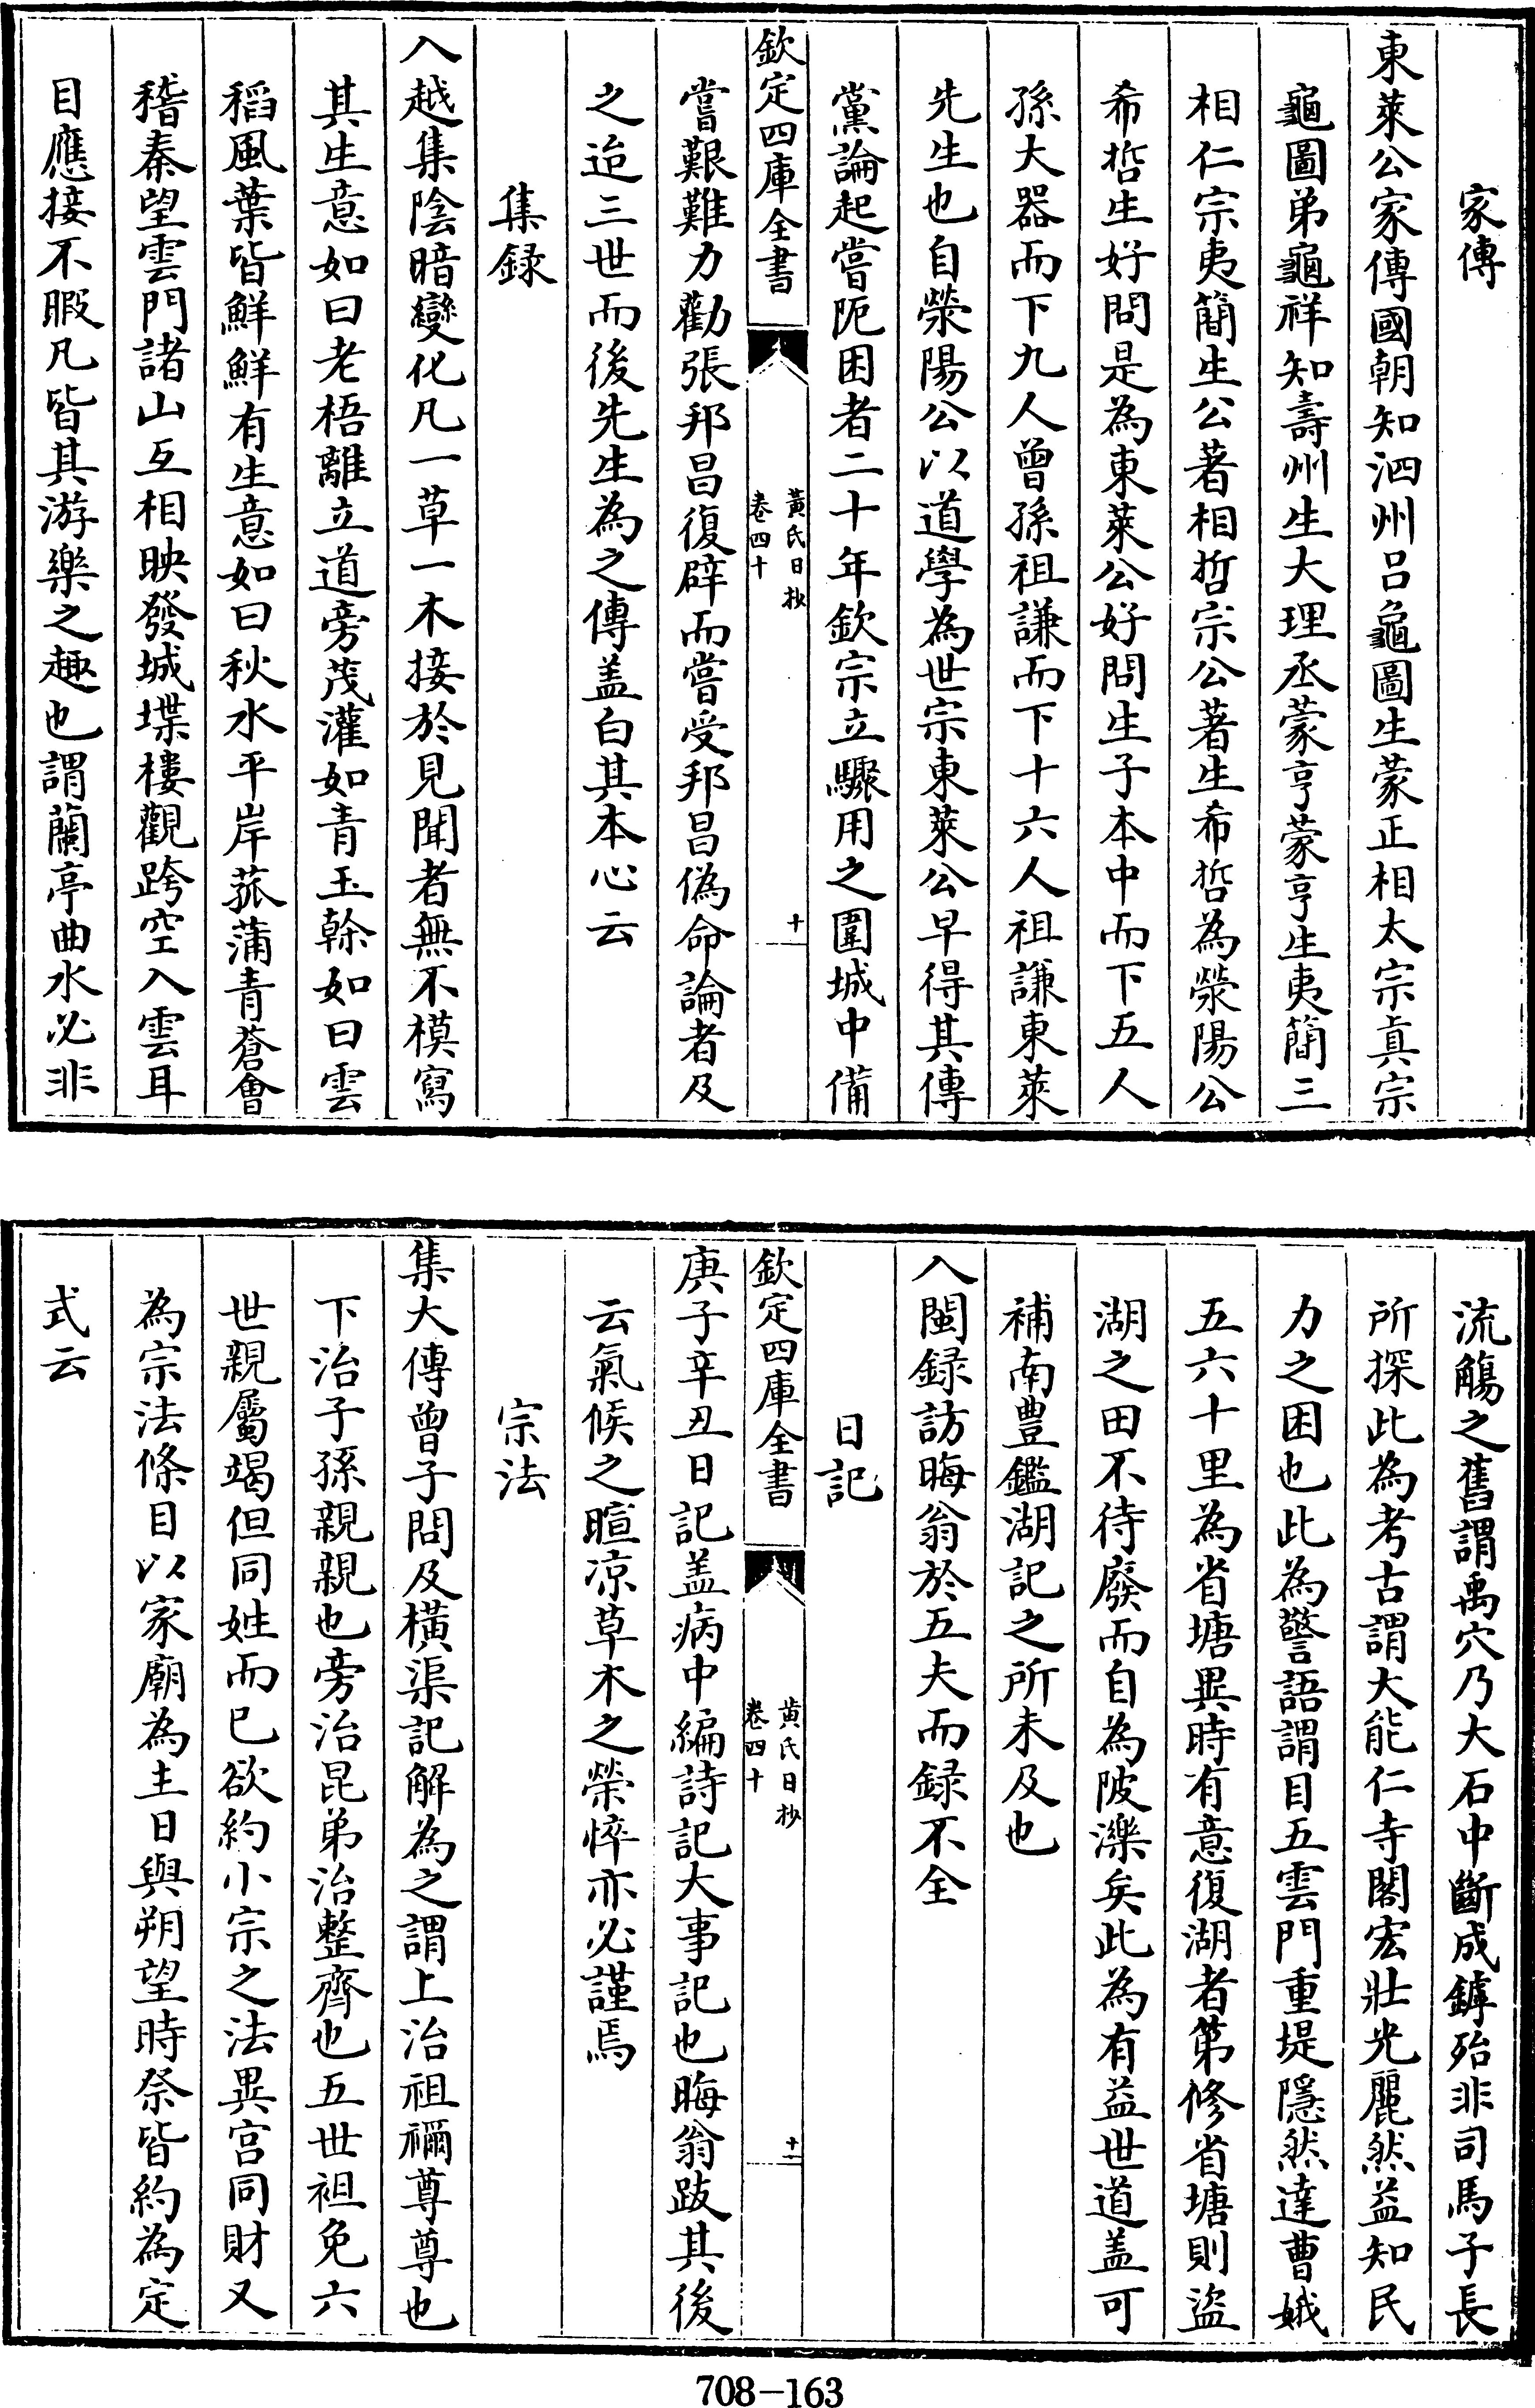 家傳
東萊公家傳國朝知泗州呂龜圖生蒙正相太宗真宗
龜圖弟龜祥知壽州生大理丞蒙亨蒙亨生夷簡三
相仁宗夷簡生公著相哲宗公著生希哲為滎陽公
希哲生好問是為東萊公好問生子本中而下五人
孫大器而下九人曾孫祖謙而下十六人祖謙東萊
先生也自滎陽公以道學為世宗東萊公早得其傳
黨論起嘗阨困者二十年欽宗立驟用之圍城中備
欽定四庫全書
黃氏日抄
卷四十
十
嘗艱難力勸張邦昌復辟而嘗受邦昌偽命論者及
之迨三世而後先生為之傳盖白其本心云
集録
入越集陰暗變化凡一草一木接於見聞者無不模寫
其生意如曰老梧離立道旁茂灌如青玉榦如曰雲
稻風葉皆鮮鮮有生意如曰秋水平岸菰蒲青蒼會
稽秦望雲門諸山互相映發城堞樓觀跨空入雲耳
目應接不暇凡皆其游樂之趣也謂蘭亭曲水必非
流觴之舊謂禹穴乃大石中斷成罅殆非司馬子長
所探此為考古謂大能仁寺閣宏壯光麗然益知民
力之困也此為警語謂目五雲門重堤隱然達曹娥
五六十里為省塘異時有意復湖者第修省塘則盜
湖之田不待廢而自為陂濼矣此為有益世道盖可
補南豊鑑湖記之所未及也
入閩録訪晦翁於五夫而録不全
日記
欽定四庫全書
黃氏日抄
卷四十
十一
庚子辛丑日記盖病中編詩記大事記也晦翁跋其後
云氣候之暄凉草木之榮悴亦必謹焉
宗法
集大傳曾子問及橫渠記解為之謂上治祖禰尊尊也
下治子孫親親也旁治昆弟治整齊也五世袒免六
世親屬竭但同姓而已欲約小宗之法異宮同財又
為宗法條目以家廟為主日與朔望時祭皆約為定
式云
708-163